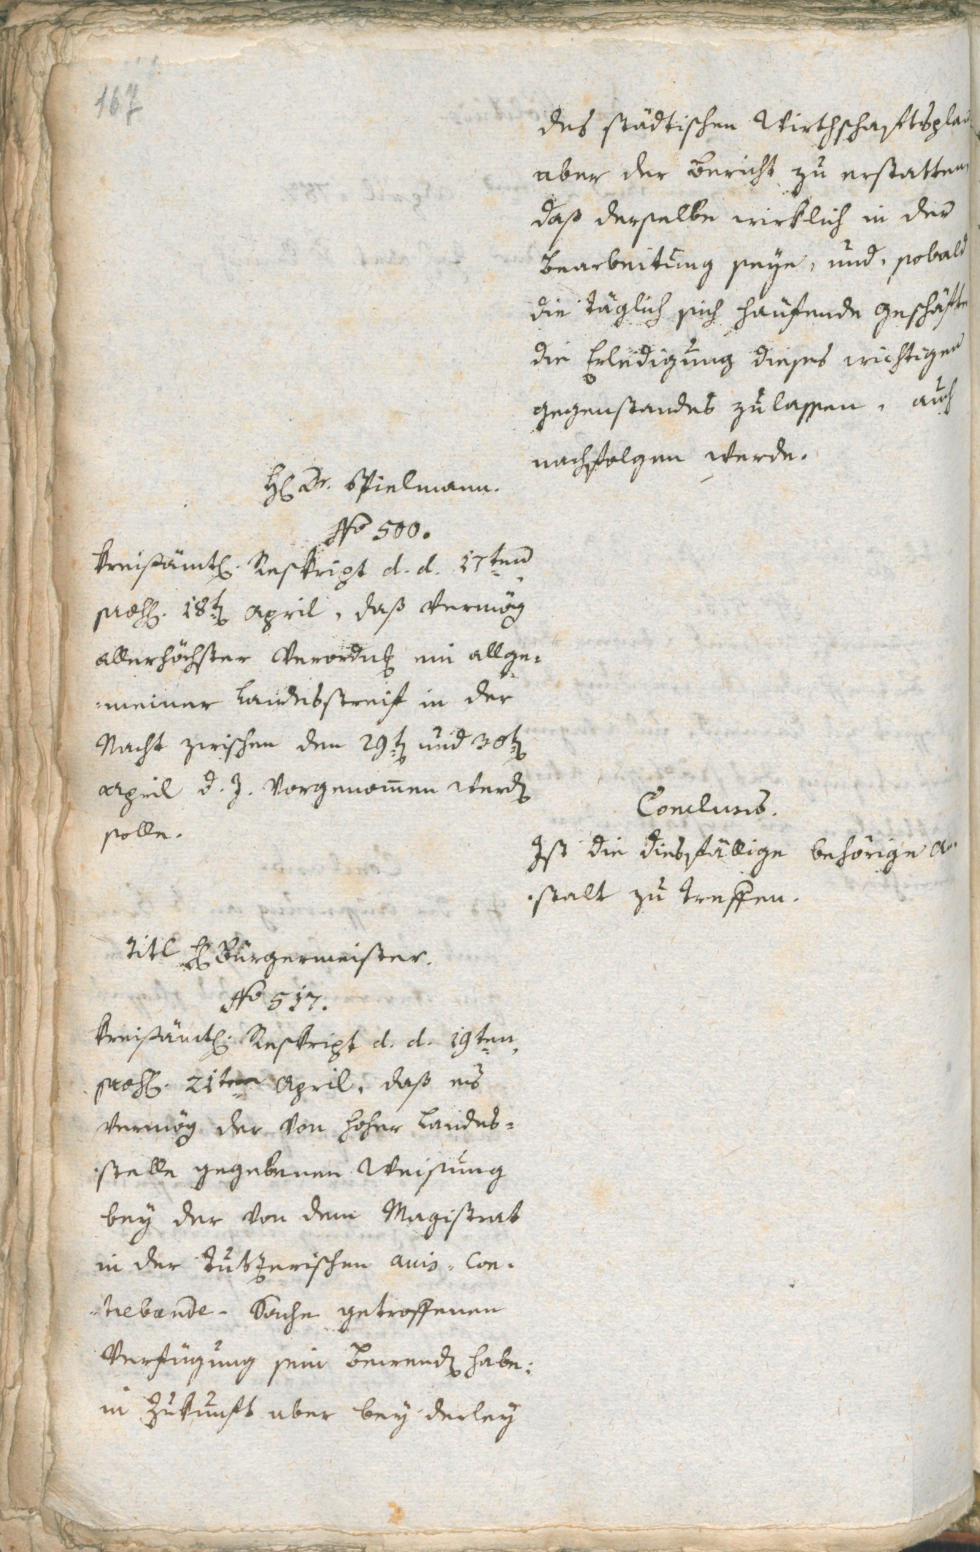 167
des städtischen Wirthschaftsplan
aber der Bericht zu erstatten,
daß derselbe wirklich in der
Bearbeitung seye, und, sobald
die täglich sich häufende Geschäfte
die Erledigung dieses wichtigen
gegenstandes zulassen, auch
nachfolgen werde.
H. Dr. Spielmann.
No 500.
Kreißämtl. Reskript d. d. 17ten
praes. 18t April, daß vermög
allerhöchster Verordnu ein allge-
-meiner Landesstreif in der
Nacht zwischen den 29t und 30t
April d. J. vorgenommen werd
solle.
Conclusis.
Ist die diesfällige behörige An-
-stalt zu treffen.
Titl H Bürgermeister.
No 517.
Kreißämtl. Reskript d. d. 19ten,
praes. 21ten April, daß es
vermög der von hoher Landes-
-stelle gegebenen Weisung
bey der von dem Magistrat
in der avis. Con-
-trebande- Sache getroffenen
Verfügung sein Bewend habe:
in Zukunft aber bey derley